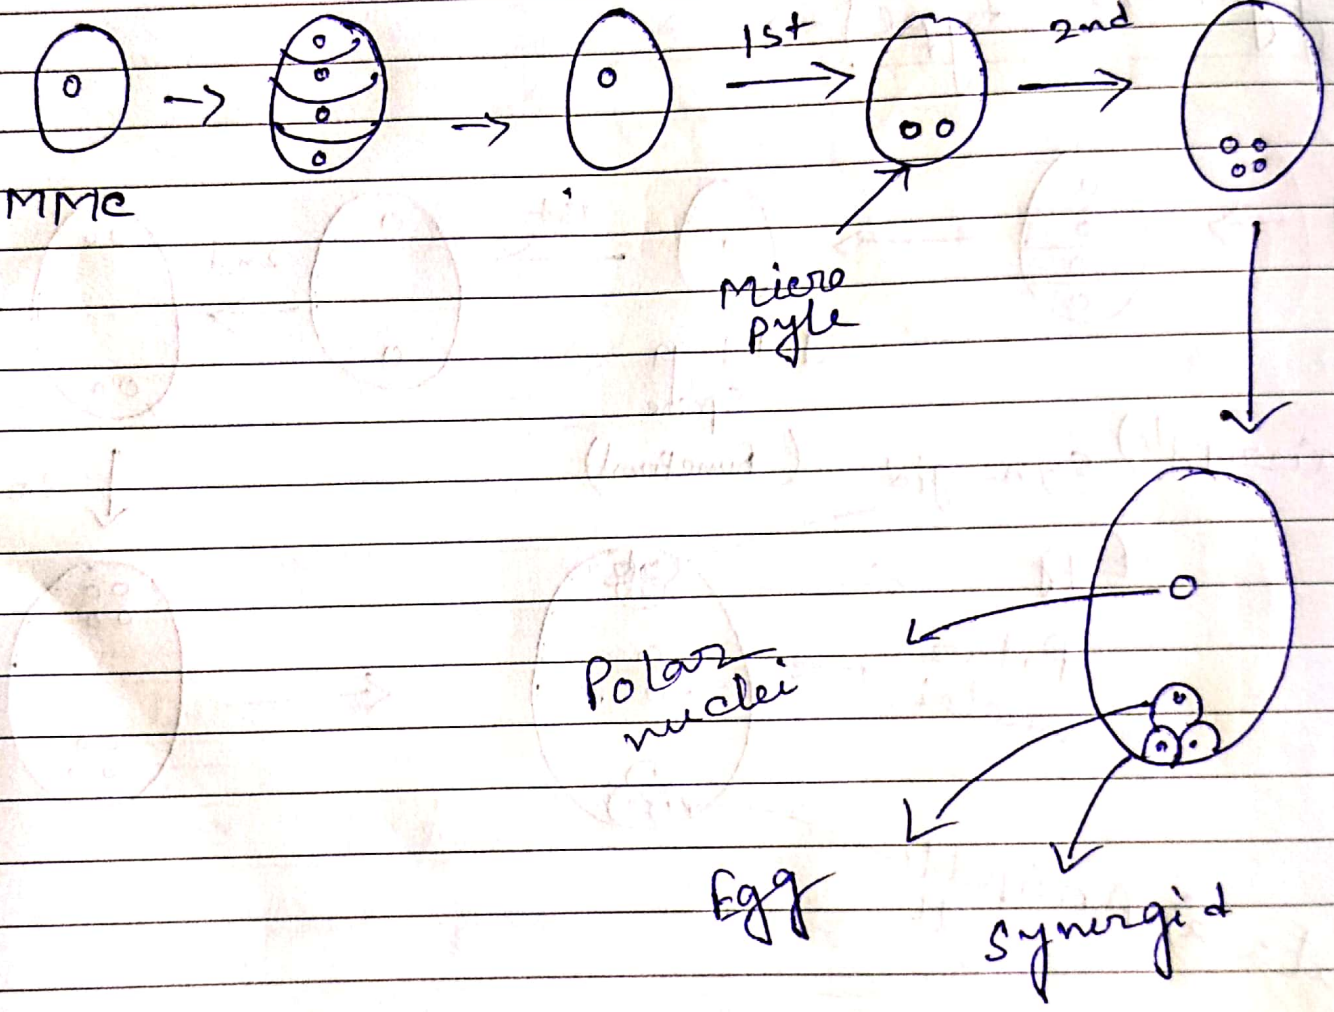 1st
2nd
MMC
Micro
pyle
Polar
nuclei
Egg
Synergid